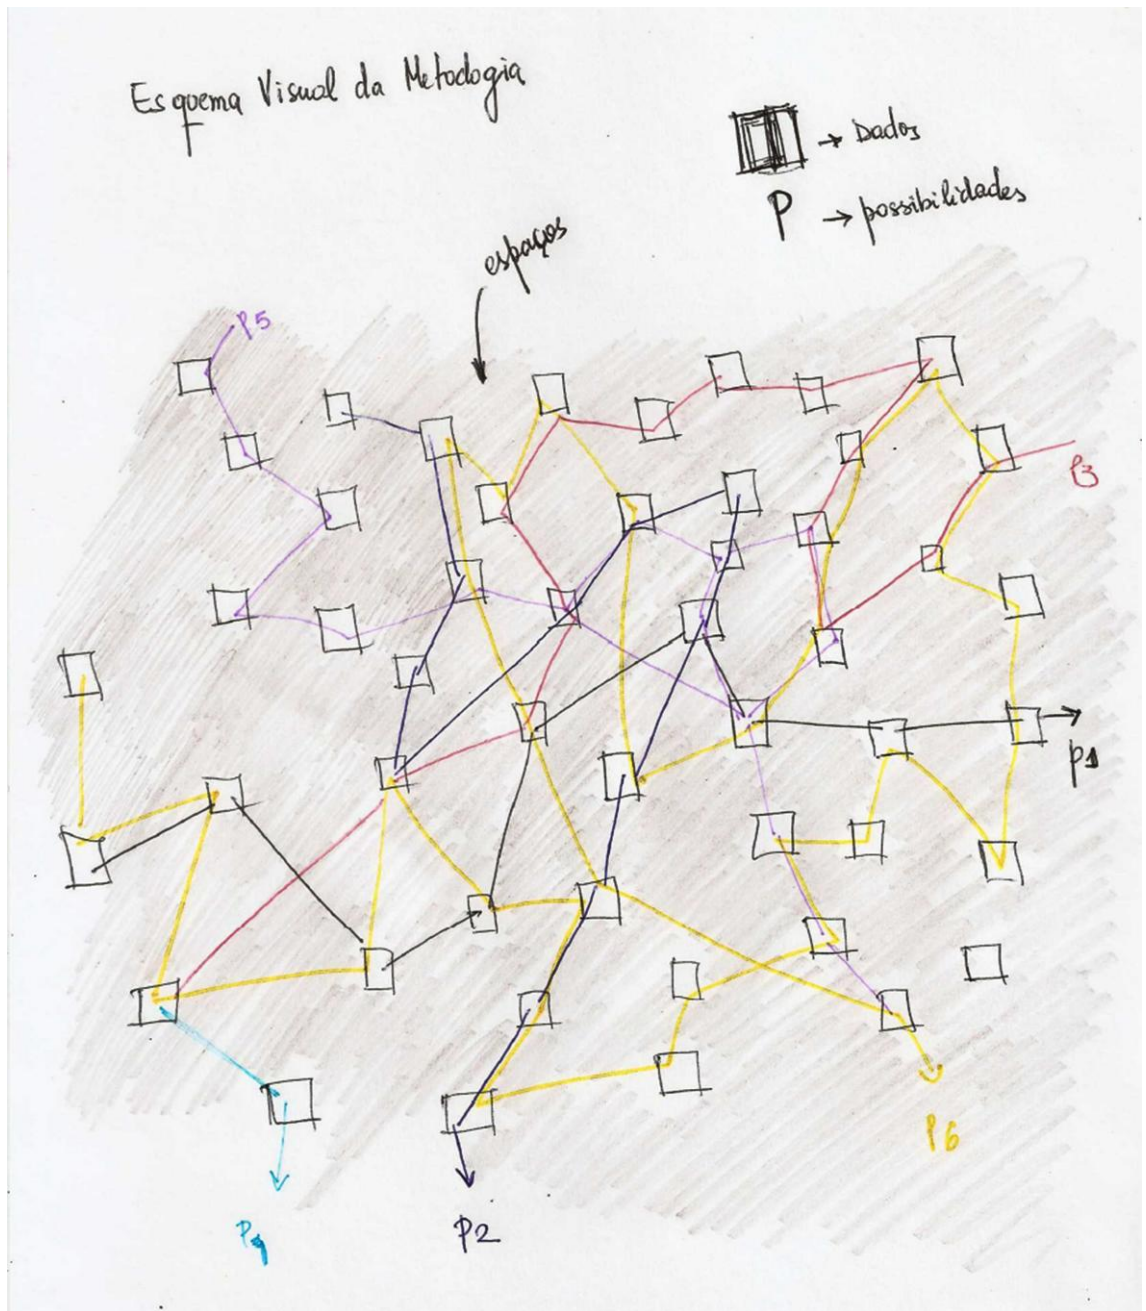 Esquema Visual da Metodogia
→ Dados
P → possibilidades
espaços
P5
P3
P1
P6
P2